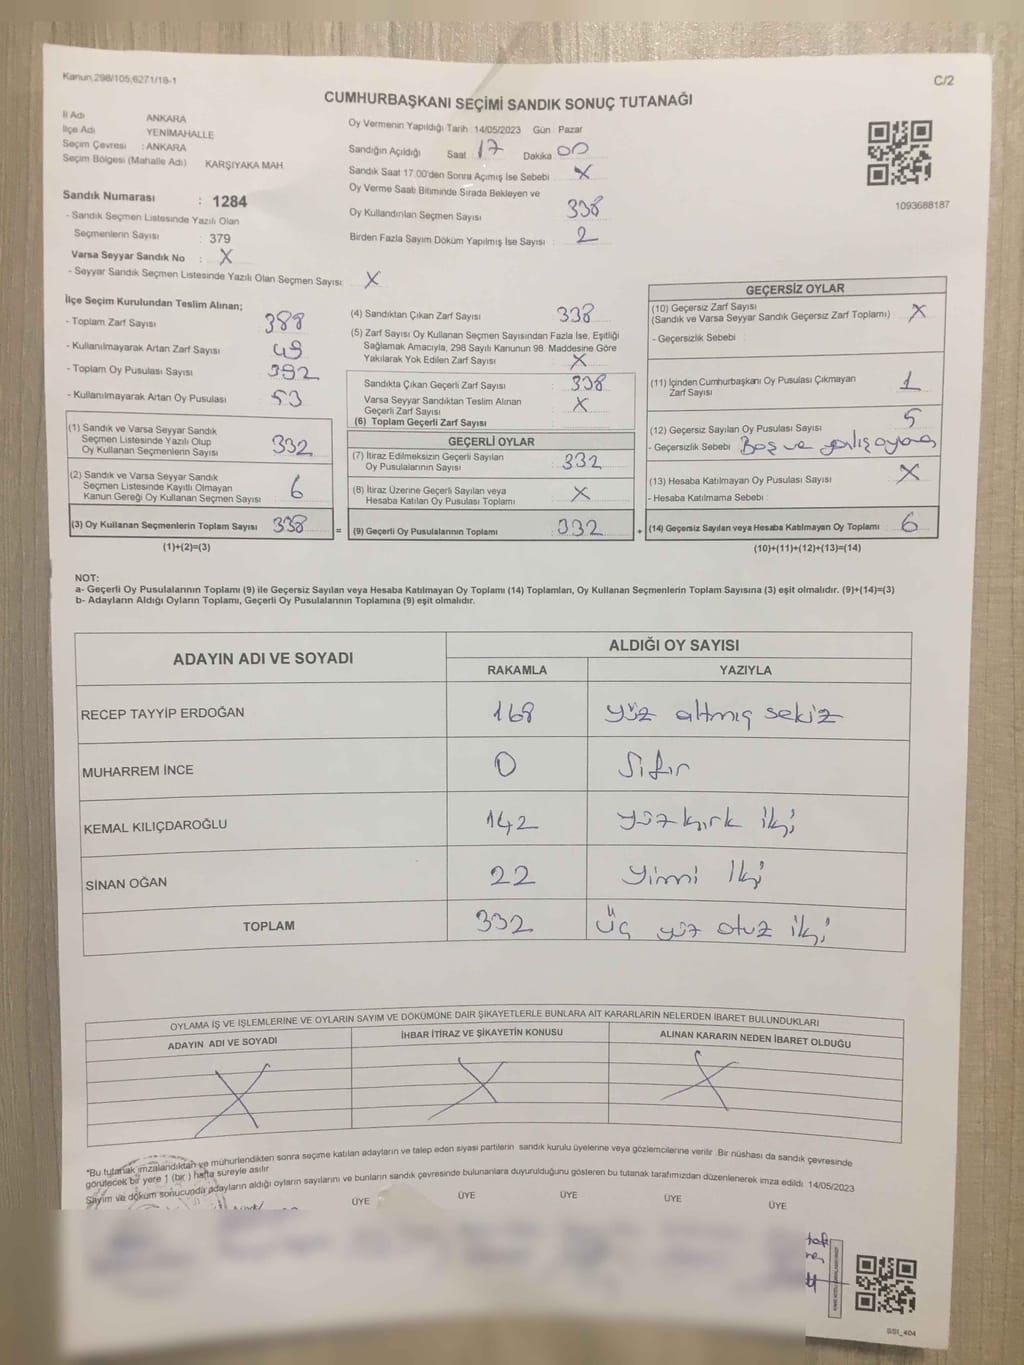 Kanun,298/105,6271/18-1
C/2
CUMHURBAŞKANI SEÇİMİ SANDIK SONUÇ TUTANAĞI
İl Adı ANKARA
İlçe Adı YENİMAHALLE
Seçim Çevresi : ANKARA
Seçim Bölgesi (Mahalle Adı) KARŞIYAKA MAH.
Sandık Numarası : 1284
- Sandık Seçmen Listesinde Yazılı Olan
Seçmenlerin Sayısı : 379
Varsa Seyyar Sandık No : X
- Seyyar Sandık Seçmen Listesinde Yazılı Olan Seçmen Sayısı: X
Oy Vermenin Yapıldığı Tarih :14/05/2023 Gün Pazar
Sandığın Açıldığı Saat 17 Dakika 00
Sandık Saat 17.00'den Sonra Açımış İse Sebebi X
Oy Verme Saati Bitiminde Sırada Bekleyen ve
Oy Kullandırılan Seçmen Sayısı 338
Birden Fazla Sayım Döküm Yapılmış İse Sayısı : 2
1093688187
İlçe Seçim Kurulundan Teslim Alınan;
- Toplam Zarf Sayısı 388
- Kullanılmayarak Artan Zarf Sayısı 49
- Toplam Oy Pusulası Sayısı 392
- Kullanılmayarak Artan Oy Pusulası 53
(1) Sandık ve Varsa Seyyar Sandık
Seçmen Listesinde Yazılı Olup
Oy Kullanan Seçmenlerin Sayısı 332
(2) Sandık ve Varsa Seyyar Sandık
Seçmen Listesinde Kayıtlı Olmayan
Kanun Gereği Oy Kullanan Seçmen Sayısı 6
(3) Oy Kullanan Seçmenlerin Toplam Sayısı 338 =
(1)+(2)=(3)
(4) Sandıktan Çıkan Zarf Sayısı 338
(5) Zarf Sayısı Oy Kullanan Seçmen Sayısından Fazla İse, Eşitliği
Sağlamak Amacıyla, 298 Sayılı Kanunun 98. Maddesine Göre
Yakılarak Yok Edilen Zarf Sayısı X
Sandıkta Çıkan Geçerli Zarf Sayısı 338
Varsa Seyyar Sandıktan Teslim Alınan
Geçerli Zarf Sayısı X
(6) Toplam Geçerli Zarf Sayısı
GEÇERLİ OYLAR
(7) İtiraz Edilmeksizin Geçerli Sayılan
Oy Pusulalarının Sayısı : 332
(8) İtiraz Üzerine Geçerli Sayılan veya
Hesaba Katılan Oy Pusulası Toplamı X
(9) Geçerli Oy Pusulalarının Toplamı 332 +
GEÇERSİZ OYLAR
(10) Geçersiz Zarf Sayısı
(Sandık ve Varsa Seyyar Sandık Geçersiz Zarf Toplamı) X
- Geçersizlik Sebebi :
(11) İçinden Cumhurbaşkanı Oy Pusulası Çıkmayan
Zarf Sayısı 1
(12) Geçersiz Sayılan Oy Pusulası Sayısı 5
- Geçersizlik Sebebi Boş ve yanlış oylama
(13) Hesaba Katılmayan Oy Pusulası Sayısı X
- Hesaba Katılmama Sebebi :
(14) Geçersiz Sayılan veya Hesaba Katılmayan Oy Toplamı 6
(10)+(11)+(12)+(13)=(14)
NOT:
a- Geçerli Oy Pusulalarının Toplamı (9) ile Geçersiz Sayılan veya Hesaba Katılmayan Oy Toplamı (14) Toplamları, Oy Kullanan Seçmenlerin Toplam Sayısına (3) eşit olmalıdır. (9)+(14)=(3)
b- Adayların Aldığı Oyların Toplamı, Geçerli Oy Pusulalarının Toplamına (9) eşit olmalıdır.
ADAYIN ADI VE SOYADI ALDIĞI OY SAYISI
RAKAMLA YAZIYLA
RECEP TAYYİP ERDOĞAN 168 yüz altmış sekiz
MUHARREM İNCE 0 Sıfır
KEMAL KILIÇDAROĞLU 142 yüzkırk iki
SİNAN OĞAN 22 yirmi iki
TOPLAM 332 üç yüz otuz iki
OYLAMA İŞ VE İŞLEMLERİNE VE OYLARIN SAYIM VE DÖKÜMÜNE DAİR ŞİKAYETLERLE BUNLARA AİT KARARLARIN NELERDEN İBARET BULUNDUKLARI
ADAYIN ADI VE SOYADI İHBAR İTİRAZ VE ŞİKAYETİN KONUSU ALINAN KARARIN NEDEN İBARET OLDUĞU
X X X
*Bu tutanak imzalandıktan ve mühürlendikten sonra seçime katılan adayların ve talep eden siyasi partilerin sandık kurulu üyelerine veya gözlemcilerine verilir .Bir nüshası da sandık çevresinde
görülecek bir yere 1 (bir ) hafta süreyle asılır
Sayım ve döküm sonucunda adayların aldığı oyların sayılarını ve bunların sandık çevresinde bulunanlara duyurulduğunu gösteren bu tutanak tarafımızdan düzenlenerek imza edildi. 14/05/2023
ÜYE ÜYE ÜYE ÜYE ÜYE
GSI_404